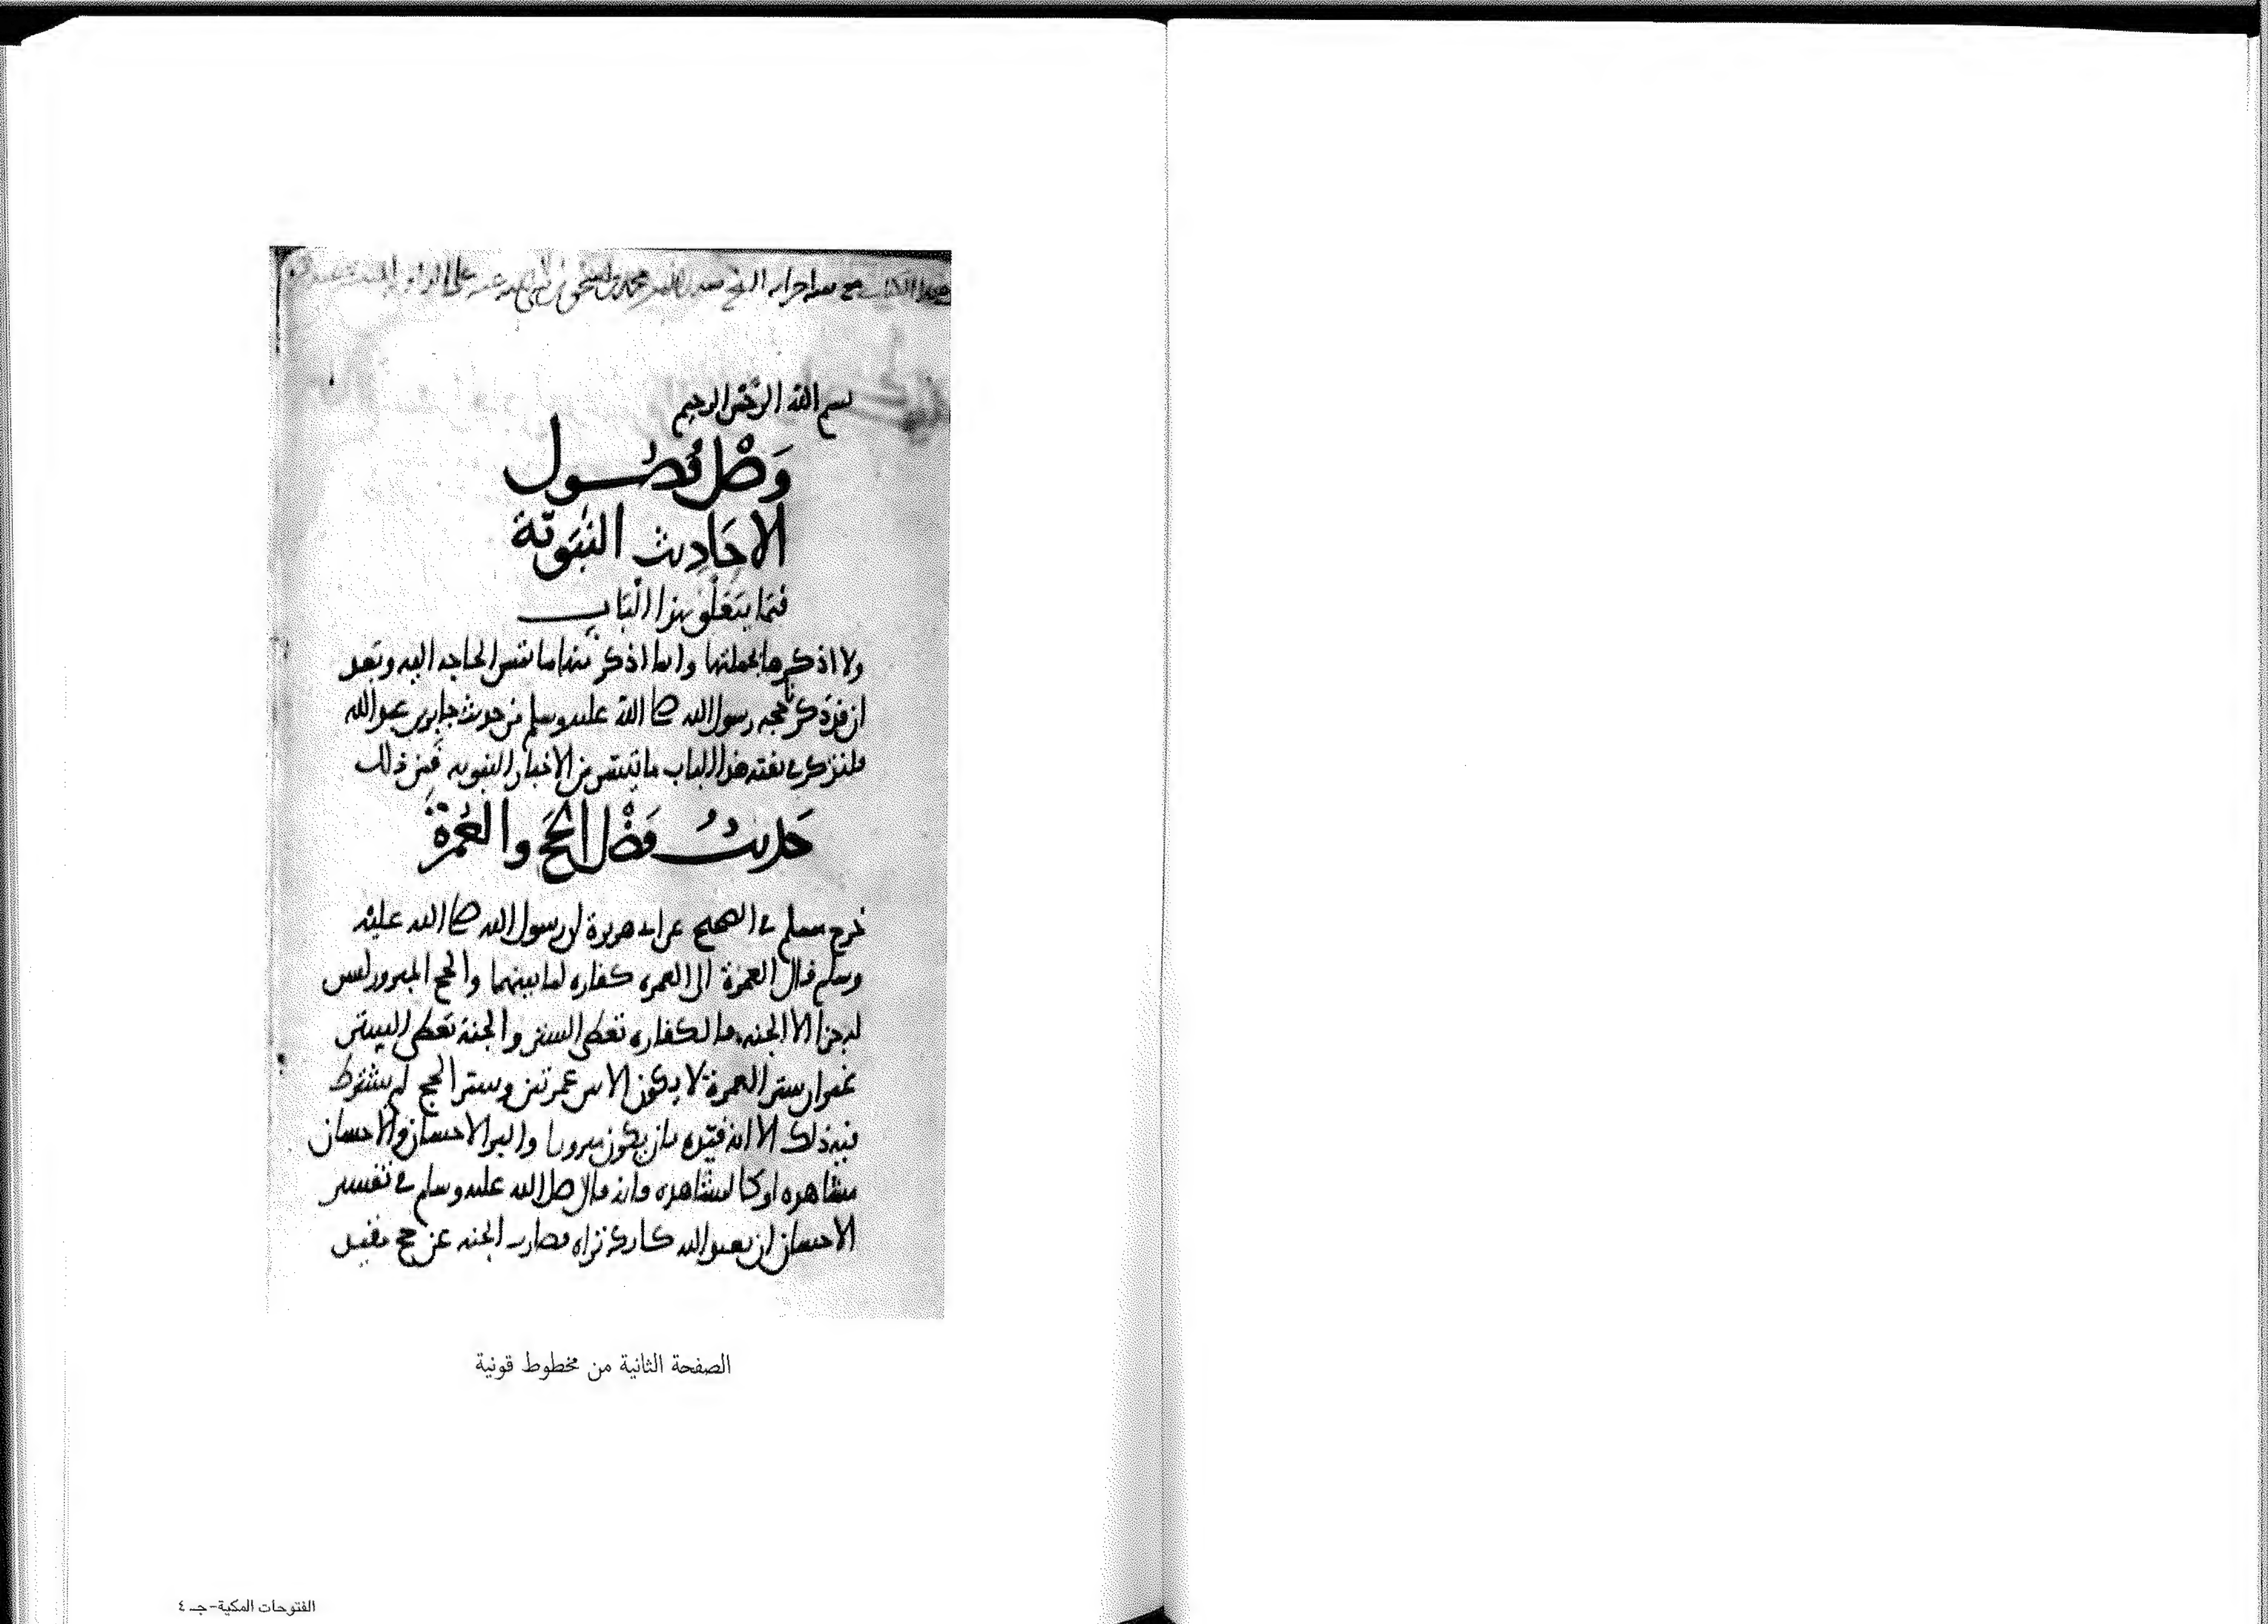 هذا الكتاب مع سائر اجزائه الشيخ محمد بن اسحق عنه على
بسم الله الرحمن الرحيم
وَصْل فُصُول
الاحَادِيث النَّبَوِيّة
فيمَا يتَعَلّق بهذا البَاب
ولا اذكرها بجملتها وانما اذكر منها ما تمس الحاجه اليه وبعد
ان قد ذكرنا حجه رسول الله صلى الله عليه وسلم من حديث جابر بن عبد الله
فلنذكر في بقيه هذا الباب ما تيسر من الاخبار النبويه فمن ذلك
حَدِيثُ فَضْل الحَج والعُمرَة
خرج مسلم في الصحيح عن ابى هريرة ان رسول الله صلى الله عليه
وسلم قال العمرة الى العمره كفاره لما بينهما والحج المبرور ليس
له جزا الا الجنه فالكفاره تعطى الستر والجنة تعطى الستر
غير ان ستر العمرة لا يكون الا بين عمرتين وستر الحج لم يشترط
فيه ذلك الا انه قيده بان يكون مبرورا والبر الاحسان والاحسان
مشاهده او كالمشاهده فانه قال صلى الله عليه وسلم في تفسير
الاحسان ان تعبد الله كانك تراه فصارت الجنه عن حج مقيد
الصفحة الثانية من مخطوط قونية
الفتوحات المكية-جـ ٤